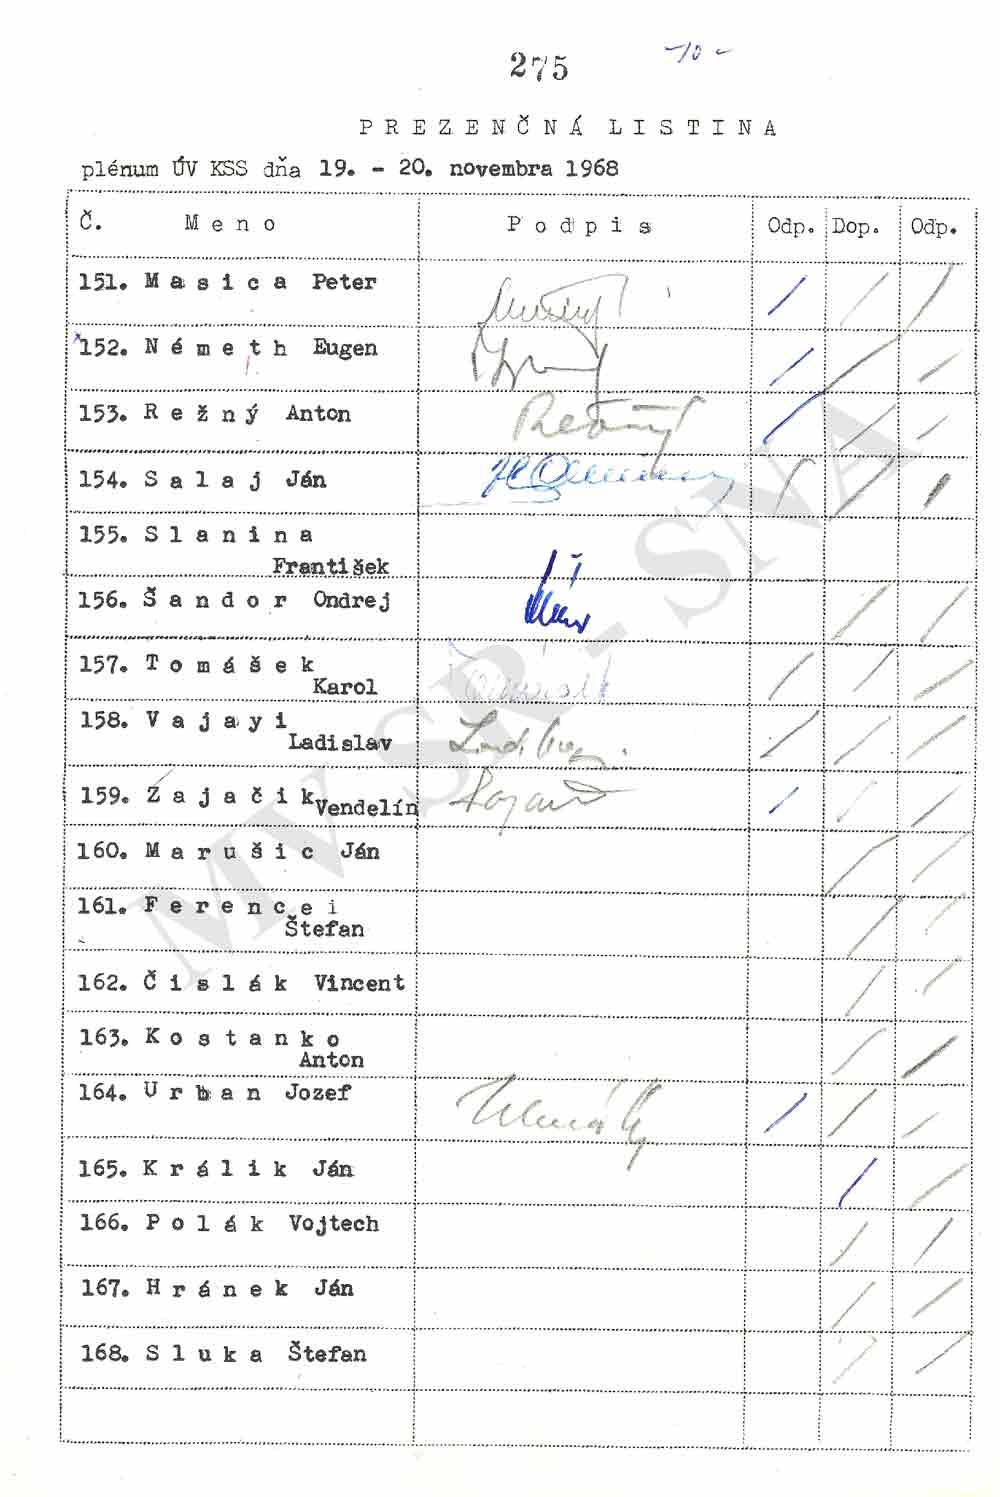 275 -10-
PREZENČNÁ LISTINA
plénum ÚV KSS dňa 19. - 20. novembra 1968
Č. Meno Podpis Odp. Dop. Odp.
151. Masica Peter
152. Németh Eugen
153. Režný Anton Režný
154. Salaj Ján
155. Slanina
František
156. Šandor Ondrej
157. Tomášek
Karol
158. Vajayi
Ladislav
159. Zajačik Vendelín
160. Marušic Ján
161. Ferencei
Štefan
162. Čislák Vincent
163. Kostanko
Anton
164. Urban Jozef
165. Králik Ján
166. Polák Vojtech
167. Hránek Ján
168. Sluka Štefan
MV SR - SNA